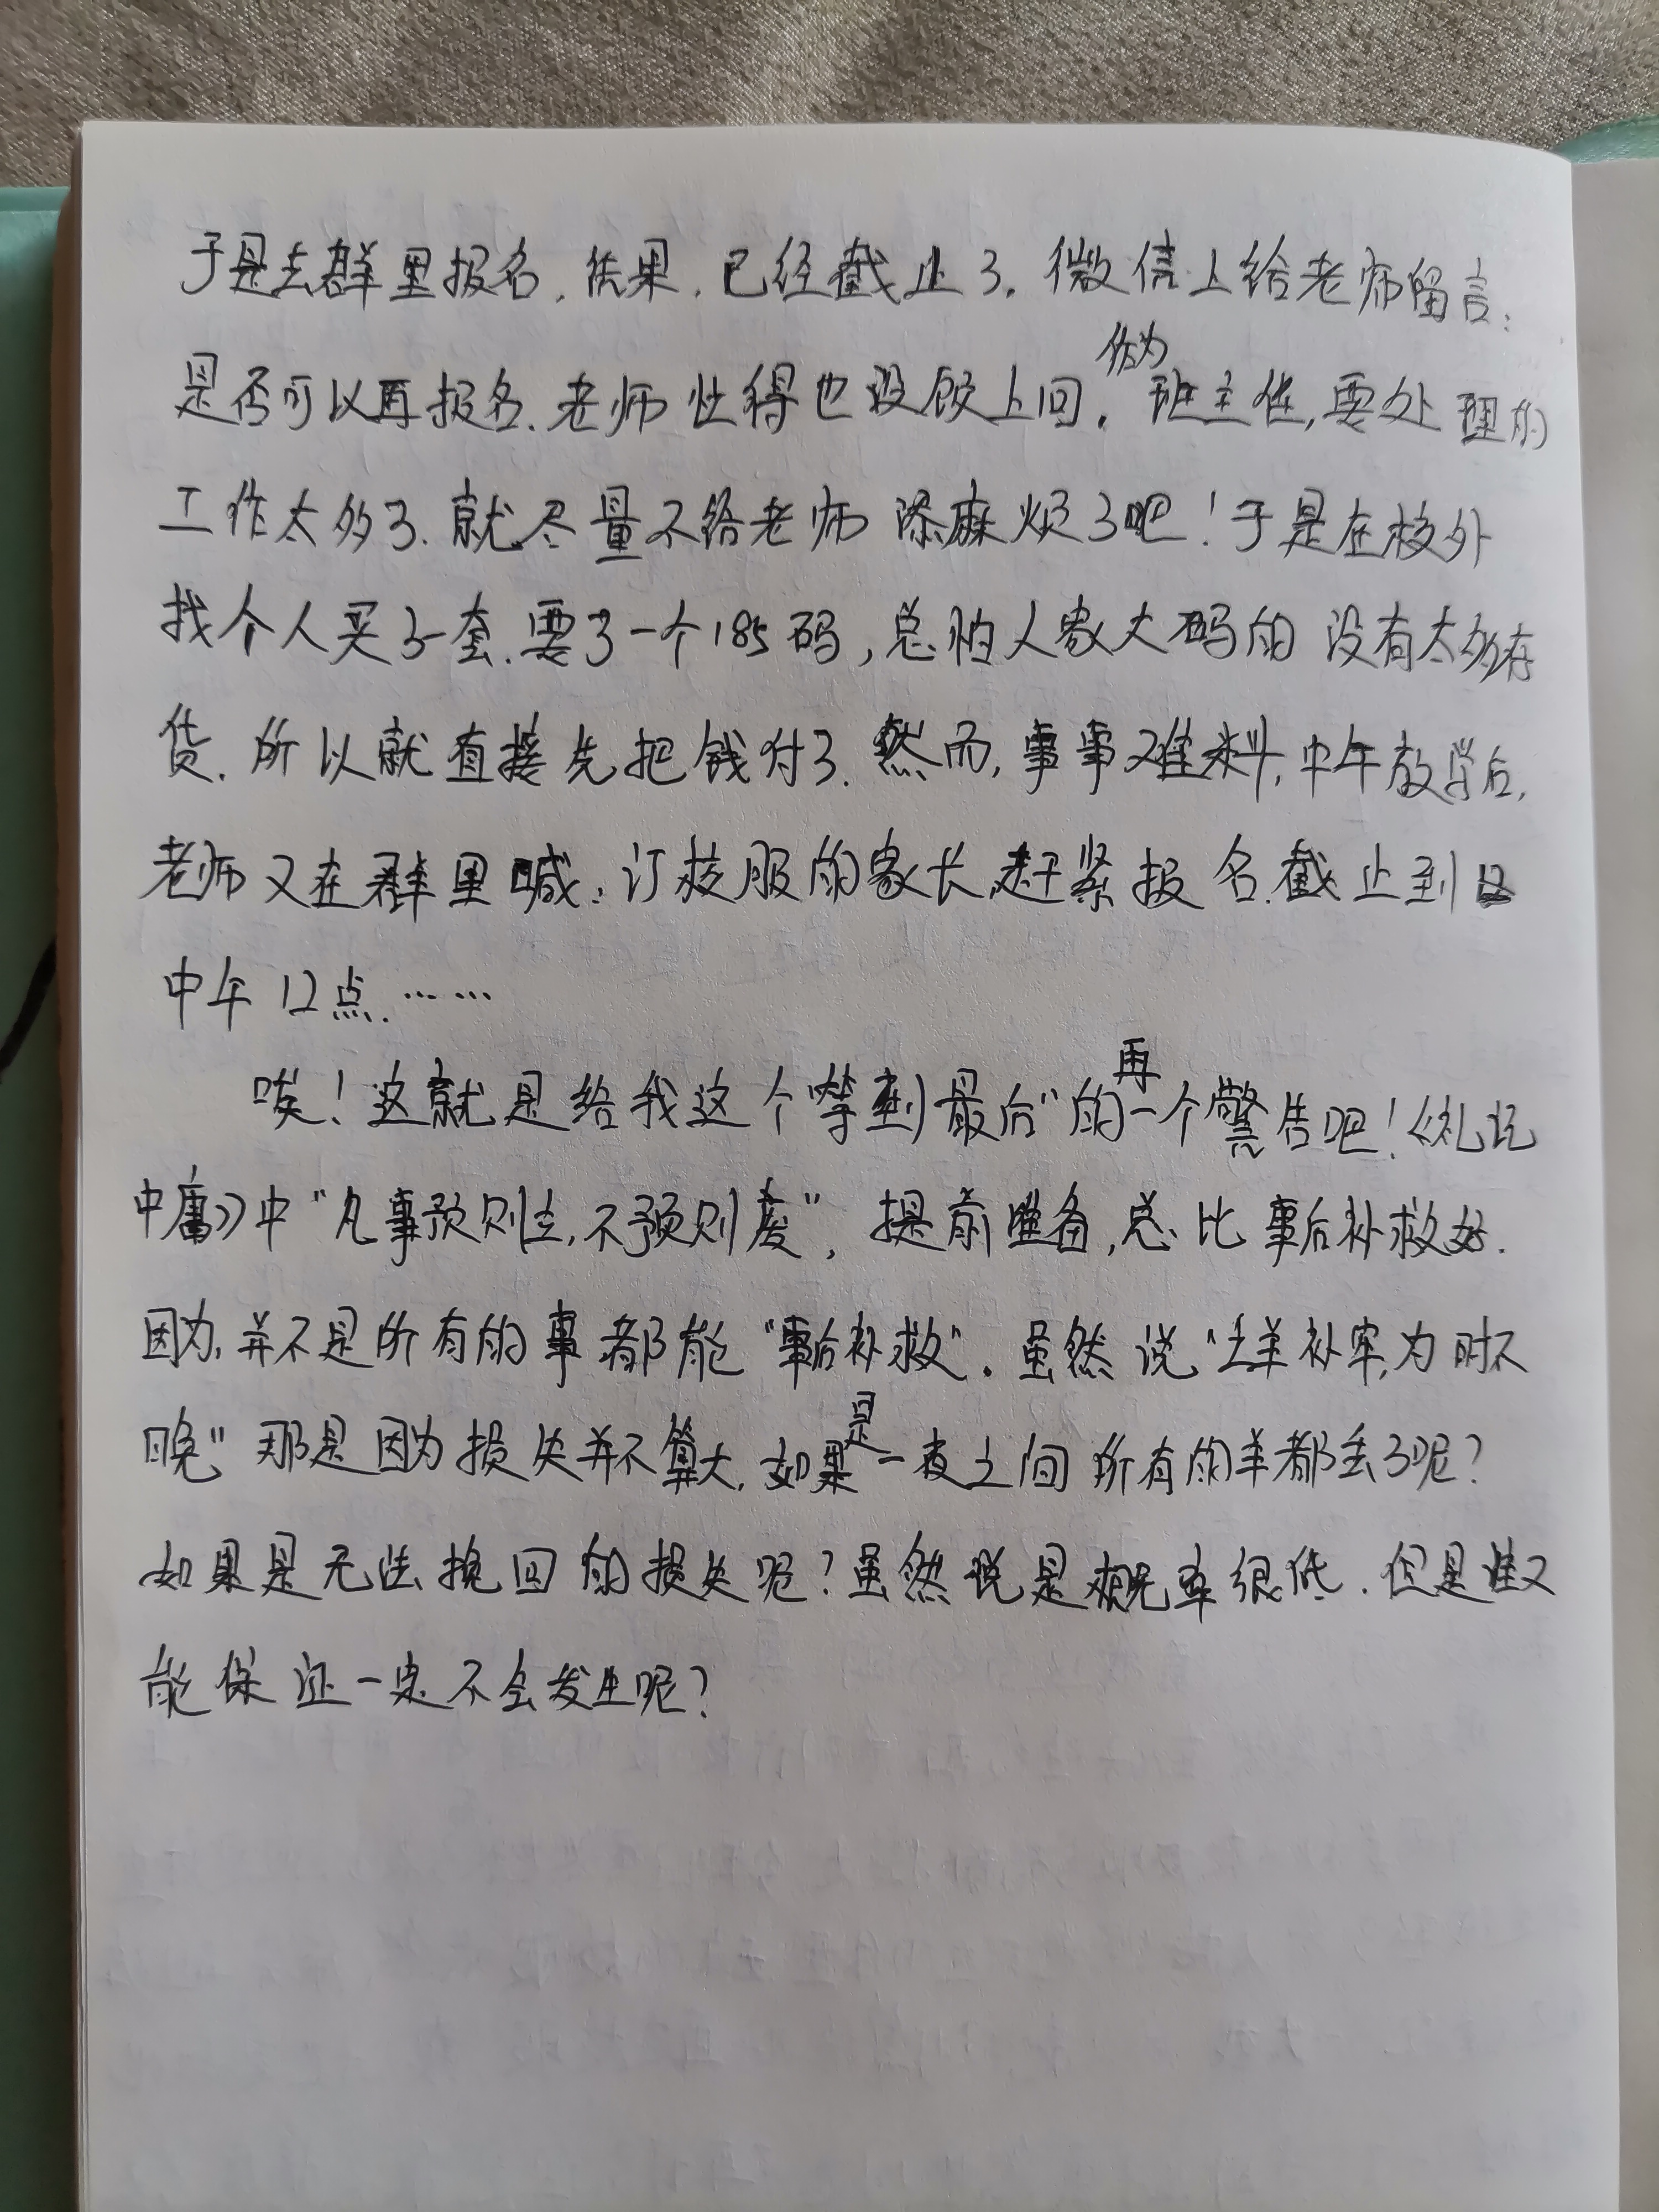 于是去群里报名,结果,已经截止了。微信上给老师留言:
是否可以再报名.老师忙得也没顾上回。作为班主任,要处理的
工作太多了.就尽量不给老师添麻烦了吧!于是在校外
找个人买了一套.要了一个185码,总怕人家大码的没有太多存
货.所以就直接先把钱付了.然而,事事难料,中午放学后,
老师又在群里喊:订校服的家长赶紧报名.截止到
中午12点.……
唉!这就是给我这个"等到最后"的再一个警告吧!《礼记
中庸》中"凡事预则立,不预则废",提前准备,总比事后补救好.
因为,并不是所有的事都能"事后补救"。虽然说"亡羊补牢,为时不
晚"那是因为损失并不算大,如果是一夜之间所有的羊都丢了呢?
如果是无法挽回的损失呢?虽然说是概率很低.但是谁又
能保证一定不会发生呢?